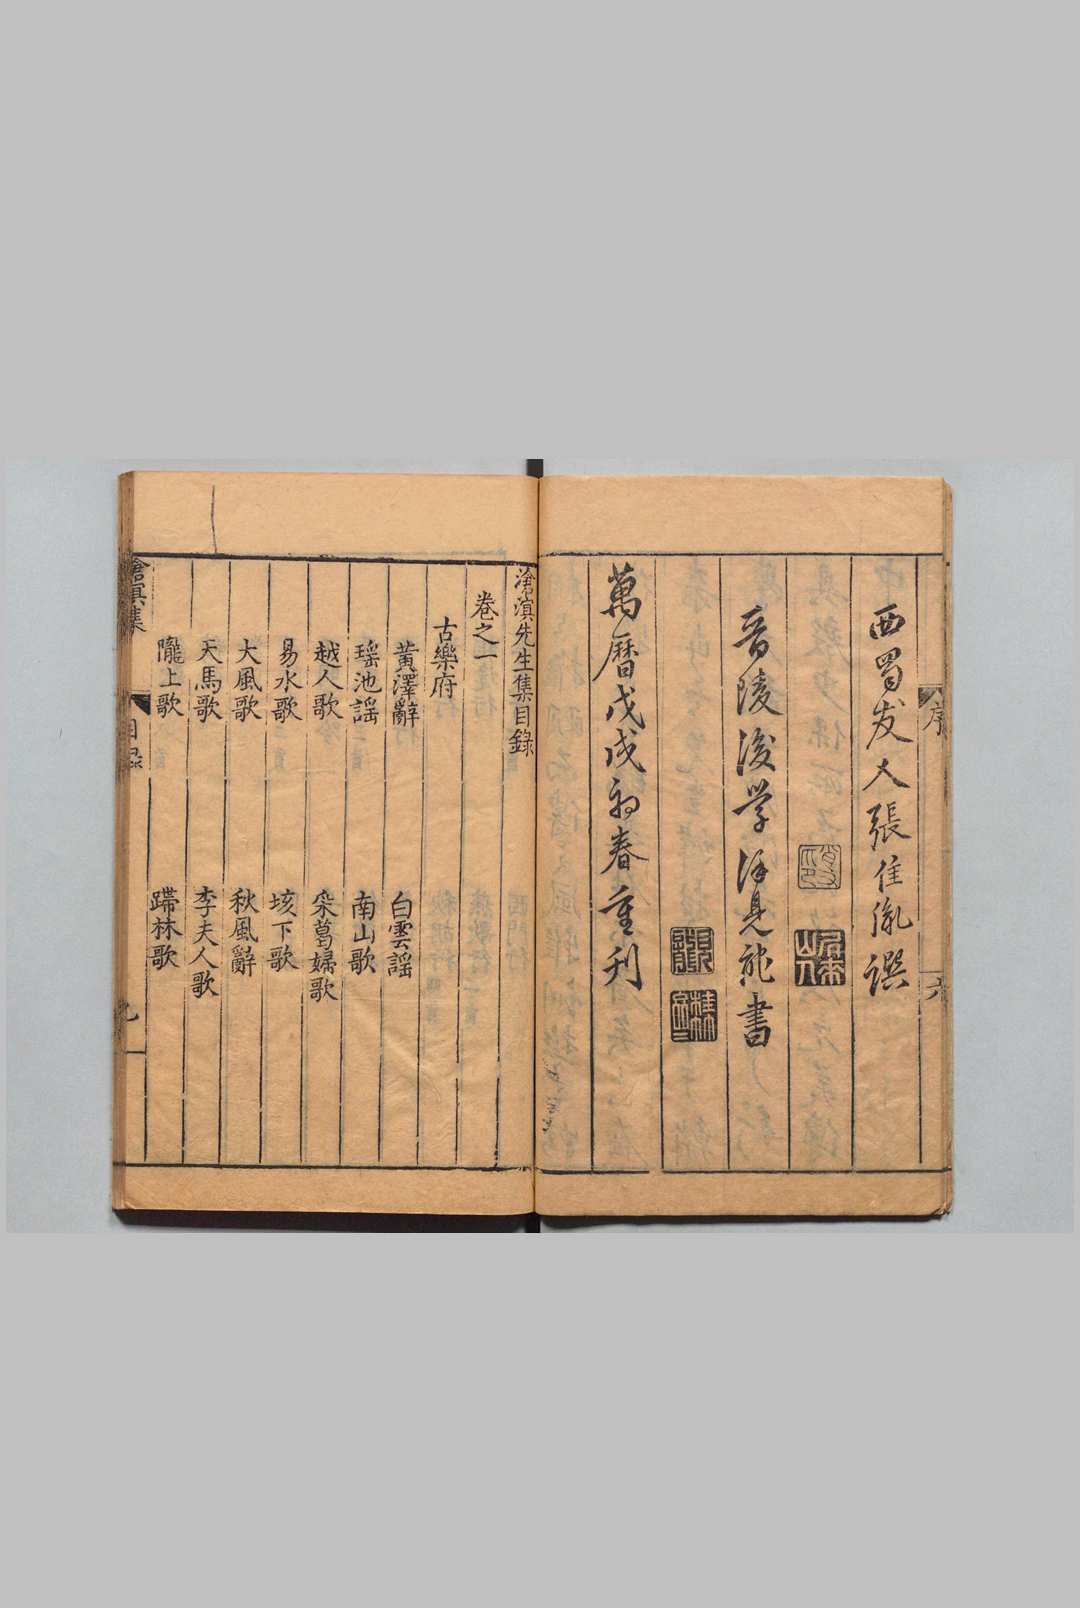 序
六
西蜀友人張佳胤譔
晉陵後學徐見龍書
萬曆戊戌初春重刊
滄溟先生集目錄
卷之一
古樂府
黃澤辭
白雲謠
瑶池謡
南山歌
越人歌
采葛婦歌
易水歌
垓下歌
大風歌
秋風辭
天馬歌
李夫人歌
隴上歌
蹛林歌
滄溟集
目錄